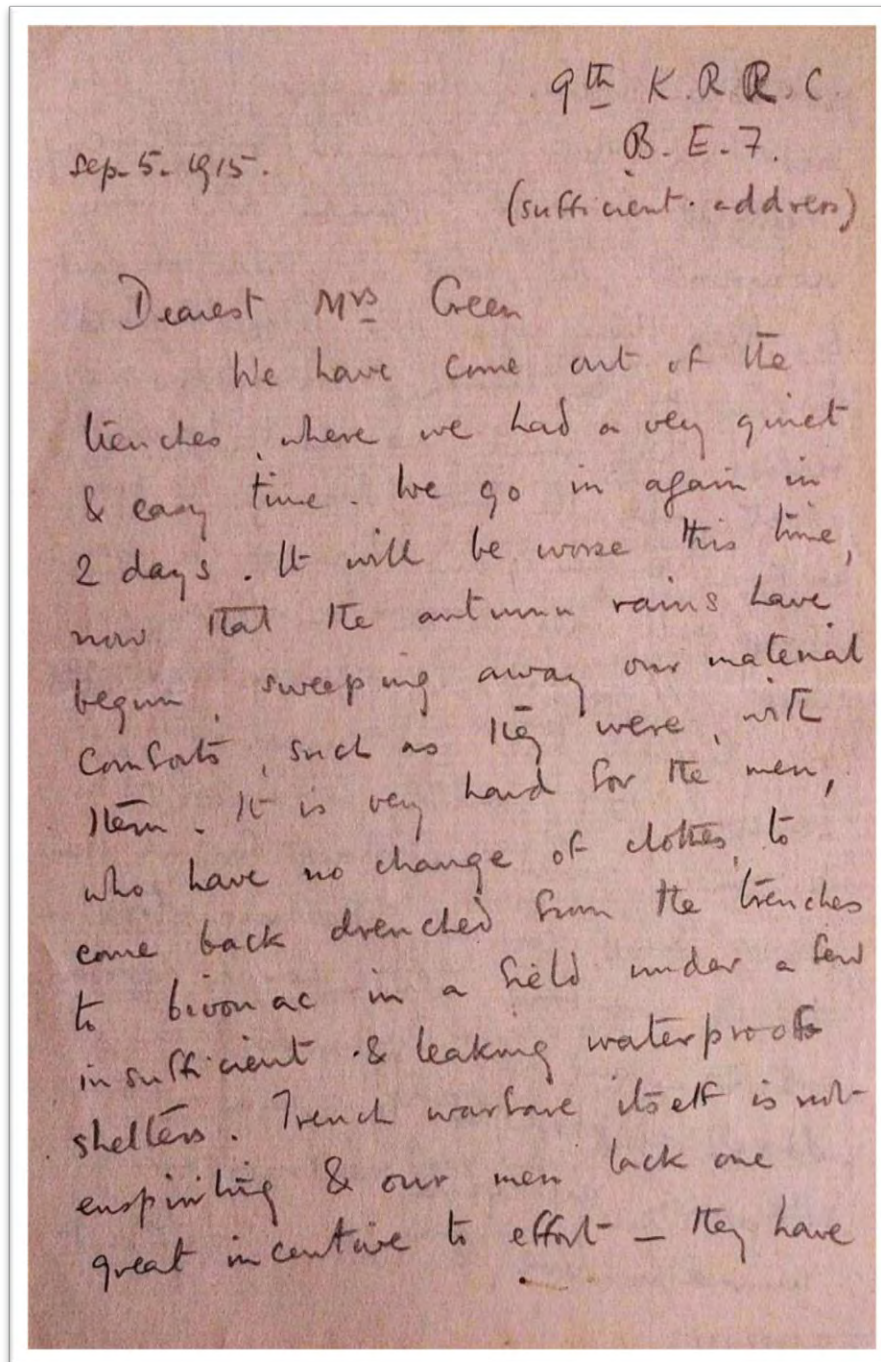 9th K.R.R.C.
Sep. 5. 1915.
B.E.F.
(sufficient address)
Dearest Mrs Green
We have come out of the
trenches, where we had a very quiet
& easy time. We go in again in
2 days. It will be worse this time,
now that the autumn rains have
begun, sweeping away our material
comforts, such as they were, with
them. It is very hard for the men,
who have no change of clothes, to
come back drenched from the trenches
to bivouac in a field under a few
insufficient & leaking waterproof
shelters. Trench warfare itself is not
enspiriting & our men lack one
great incentive to effort — they have